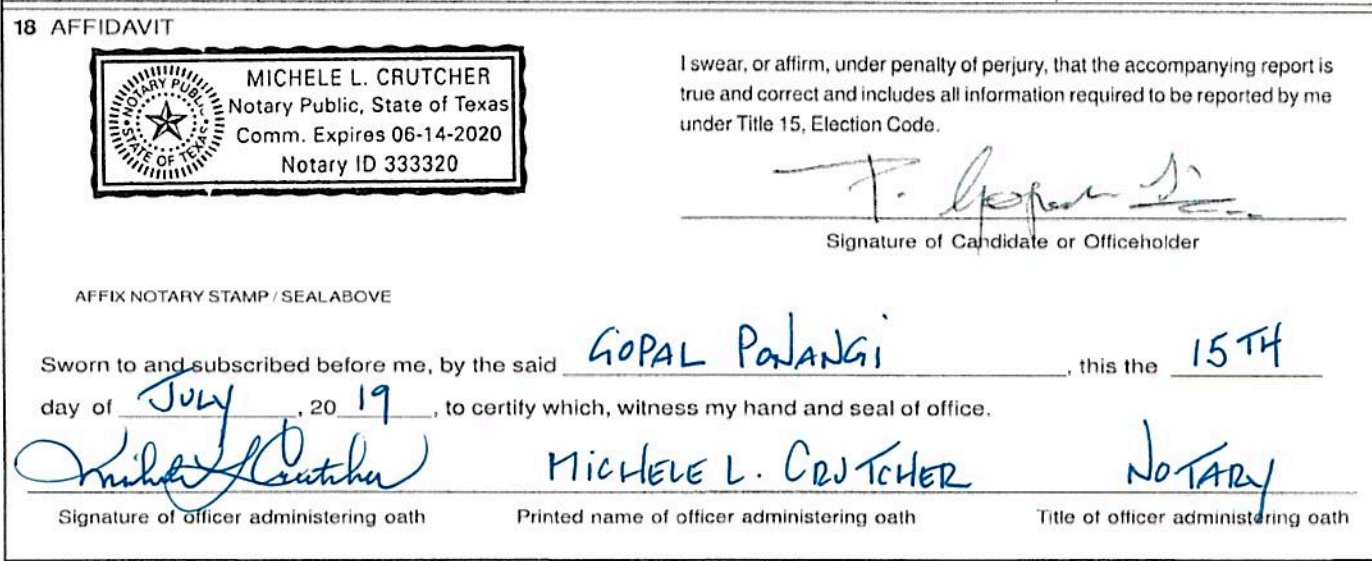 18 AFFIDAVIT
MICHELE L. CRUTCHER
Notary Public, State of Texas
Comm. Expires 06-14-2020
Notary ID 333320
NOTARY PUBLIC
STATE OF TEXAS
I swear, or affirm, under penalty of perjury, that the accompanying report is
true and correct and includes all information required to be reported by me
under Title 15, Election Code.
P. Gopal
Signature of Candidate or Officeholder
AFFIX NOTARY STAMP / SEAL ABOVE
Sworn to and subscribed before me, by the said GOPAL PONANGI, this the 15TH
day of JULY, 20 19, to certify which, witness my hand and seal of office.
Michele L Crutcher MICHELE L. CRUTCHER NOTARY
Signature of officer administering oath Printed name of officer administering oath Title of officer administering oath